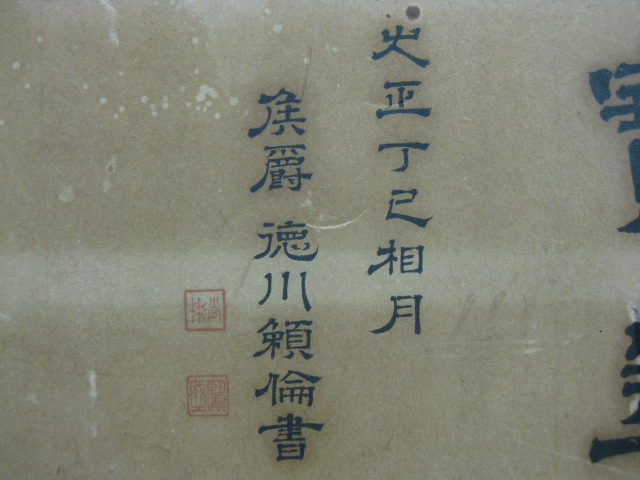 大正丁巳相月
侯爵 徳川頼倫書